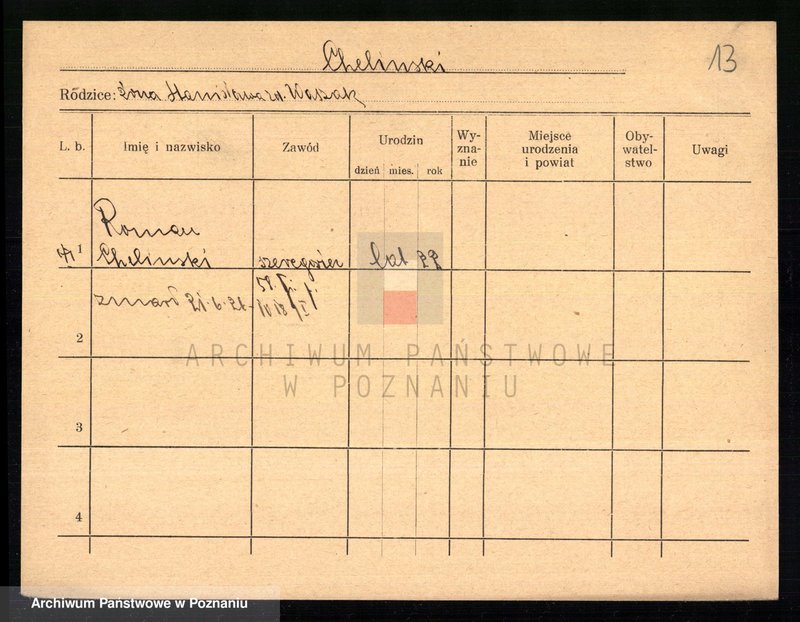 Chelinski
13
Rodzice: żona Stanisława zd. Waszak
L. b.
Imię i nazwisko
Zawód
Urodzin
dzień mies. rok
Wy-
zna-
nie
Miejsce
urodzenia
i powiat
Oby-
watel-
stwo
Uwagi
Roman
1
Chelinski
szeregowiec
lat 22
zmarł 21.6.21
2
3
4
ARCHIWUM PAŃSTWOWE
W POZNANIU
Archiwum Państwowe w Poznaniu